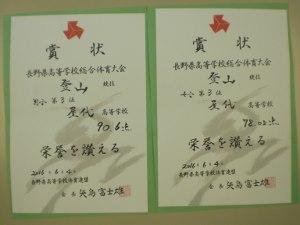 賞状
長野県高等学校総合体育大会
登山 競技
男子 第3位
屋代 高等学校
90.6点
栄誉を讃える
2016.6.4
長野県高等学校体育連盟
会長 矢島富士雄
賞状
長野県高等学校総合体育大会
登山 競技
女子 第3位
屋代 高等学校
78.02点
栄誉を讃える
2016.6.4
長野県高等学校体育連盟
会長 矢島富士雄